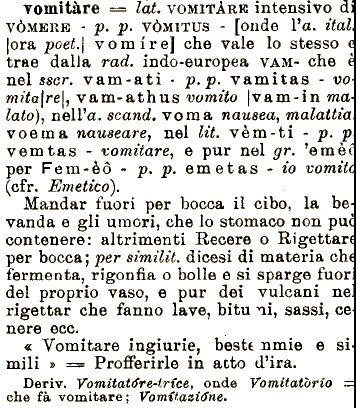 vomitàre = lat. VOMITÀRE intensivo di
VÒMERE - p. p. VÒMITUS - [onde l'a. ital.
|ora poet.| vomíre] che vale lo stesso e
trae dalla rad. indo-europea VAM- che è
nel sscr. vam-ati - p. p. vamitas - vo-
mita|re|, vam-athus vomito |vam-in ma-
lato), nell'a. scand. voma nausea, malattia,
voema nauseare, nel lit. vèm-ti - p. p.
vemtas - vomitare, e pur nel gr. 'emèô
per Fem-èô - p. p. emetas - io vomito
(cfr. Emetico).
Mandar fuori per bocca il cibo, la be-
vanda e gli umori, che lo stomaco non può
contenere: altrimenti Recere o Rigettare
per bocca; per similit. dicesi di materia che
fermenta, rigonfia o bolle e si sparge fuori
del proprio vaso, e pur dei vulcani nel
rigettar che fanno lave, bitu ni, sassi, ce-
nere ecc.
« Vomitare ingiurie, beste nmie e si-
mili » = Profferirle in atto d'ira.
Deriv. Vomitatóre-tríce, onde Vomitatòrio =
che fà vomitare; Vomitazióne.